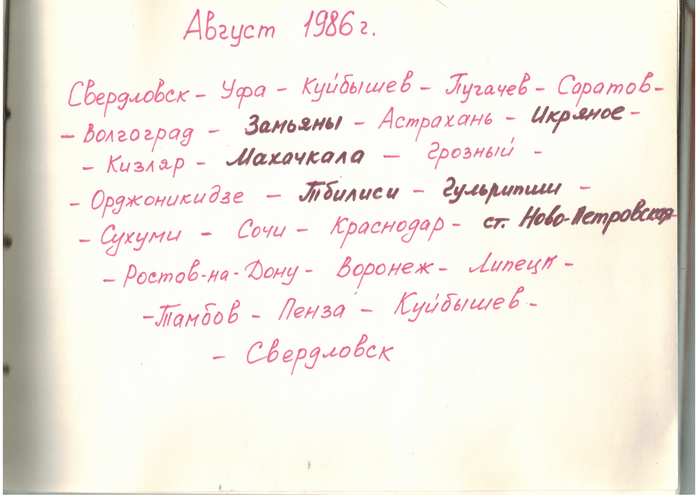 Август 1986 г.
Свердловск – Уфа – Куйбышев – Пугачев – Саратов –
– Волгоград – Замьяны – Астрахань – Икряное –
– Кизляр – Махачкала – Грозный –
– Орджоникидзе – Тбилиси – Гульрипши –
– Сухуми – Сочи – Краснодар – ст. Ново-Петровская –
– Ростов-на-Дону – Воронеж – Липецк –
– Тамбов – Пенза – Куйбышев –
– Свердловск